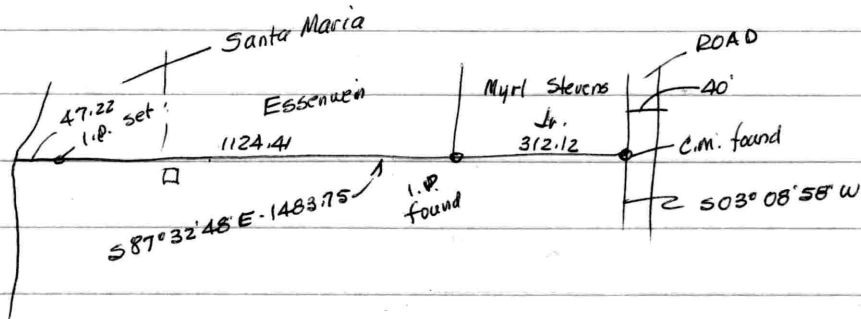 Santa Maria
ROAD
47.22
i.p. set
Essenwein
Myrl Stevens
Jr.
40'
1124.41
312.12
C.M. found
i.p.
found
S87°32'48"E - 1483.75
S03°08'58"W